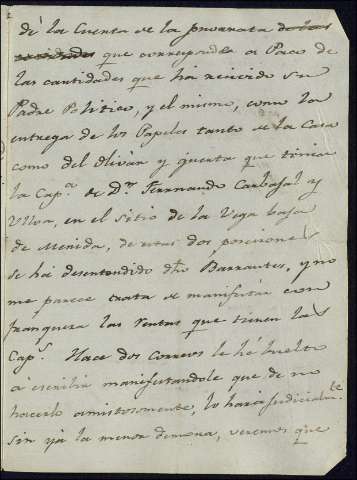 dé la Cuenta de la prorrata de las
cantidades que corresponde a Paco de
las cantidades que ha recivido su
Padre Politico, y el mismo, como la
entrega de los Papeles tanto de la Casa
como del Olivar y guerta que tenia
la Cap.ª de D.n Fernando Carbajal y
Ulloa, en el Sitio de la Vega baja
de Merida, de estas dos porciones
se há desentendido dho Barrantes, y no
me parece trata de manifestar con
franqueza las Rentas que tienen las
Cap.s Hace dos Correos le hé buelto
á escribir manifestandole que de no
hacerlo amistosamente, lo hara Judicialm.te
sin yá la menor demora, veremos que